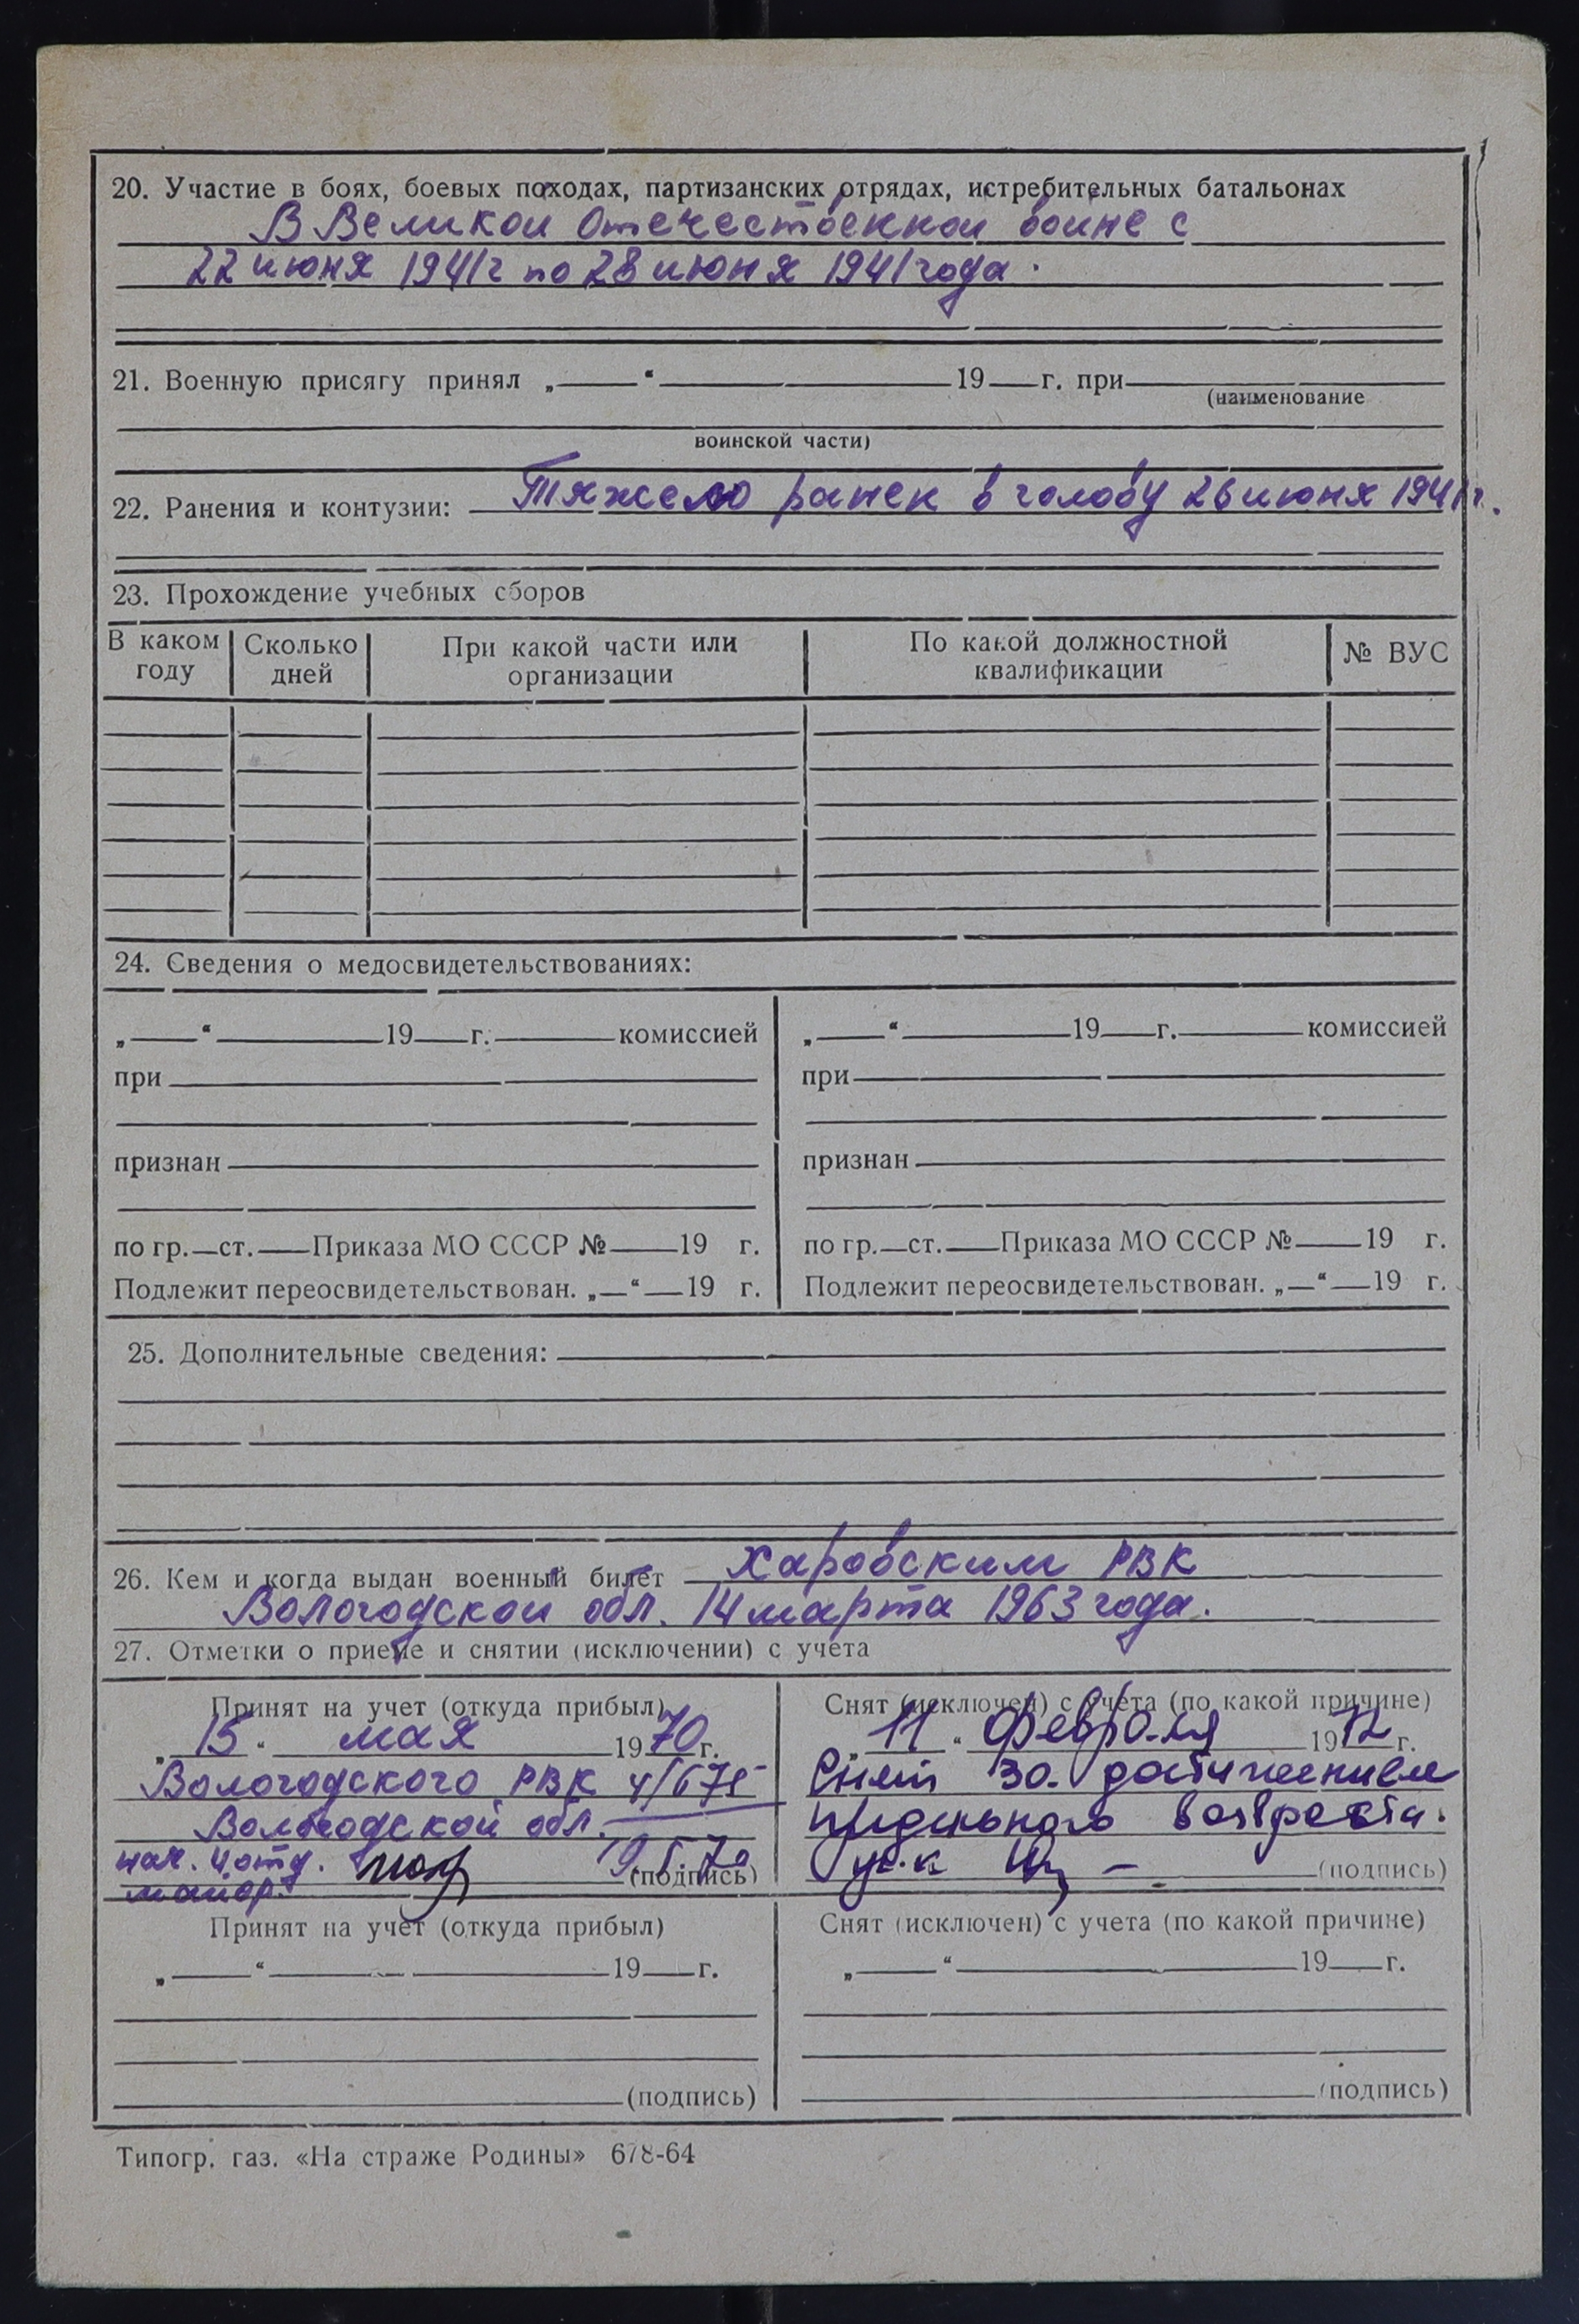 20. Участие в боях, боевых походах, партизанских отрядах, истребительных батальонах
В Великой Отечественной войне с
22 июня 1941 г по 28 июня 1941 года.
21. Военную присягу принял „ “ 19 г. при
(наименование
воинской части)
22. Ранения и контузии: Тяжело ранен в голову 26 июня 1941 г.
23. Прохождение учебных сборов
В каком году Сколько дней При какой части или организации По какой должностной квалификации № ВУС
24. Сведения о медосвидетельствованиях:
„ “ 19 г. комиссией
при
признан
по гр. ст. Приказа МО СССР № 19 г.
Подлежит переосвидетельствован. „ “ 19 г.
„ “ 19 г. комиссией
при
признан
по гр. ст. Приказа МО СССР № 19 г.
Подлежит переосвидетельствован. „ “ 19 г.
25. Дополнительные сведения:
26. Кем и когда выдан военный билет Харовским РВК
Вологодской обл. 14 марта 1963 года.
27. Отметки о приеме и снятии (исключении) с учета
Принят на учет (откуда прибыл)
„15“ мая 1970 г.
Вологодского РВК 4/675
Вологодской обл.
нач. 4 отд. 19.5.70
майор (подпись)
Снят (исключен) с учета (по какой причине)
„11“ февраля 1972 г.
Снят за достижением
предельного возраста.
(подпись)
Принят на учет (откуда прибыл)
„ “ 19 г.
(подпись)
Снят (исключен) с учета (по какой причине)
„ “ 19 г.
(подпись)
Типогр. газ. «На страже Родины» 678-64